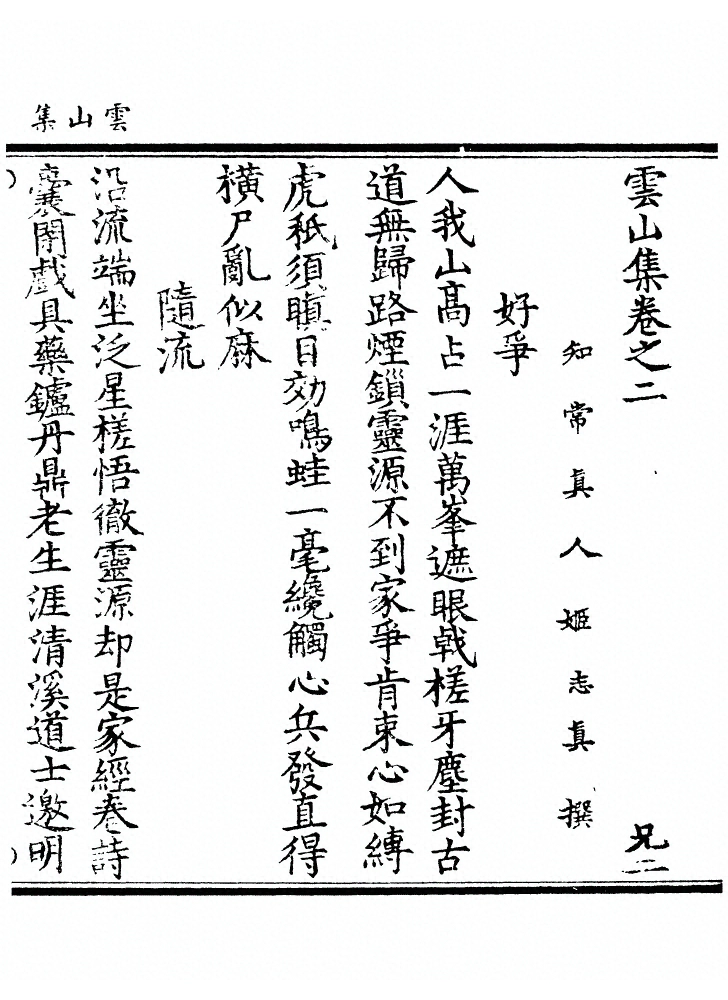 雲山集
雲山集卷之二
兄二
知常真人姬志真撰
好爭
人我山高占一涯萬峯遮眼戟槎牙塵封古
道無歸路煙鎖靈源不到家爭肯束心如縛
虎秖須瞋目効鳴蛙一毫纔觸心兵發直得
橫尸亂似麻
隨流
沿流端坐泛星槎悟徹靈源却是家經卷詩
囊閑戲具藥鑪丹鼎老生涯清溪道士邀明